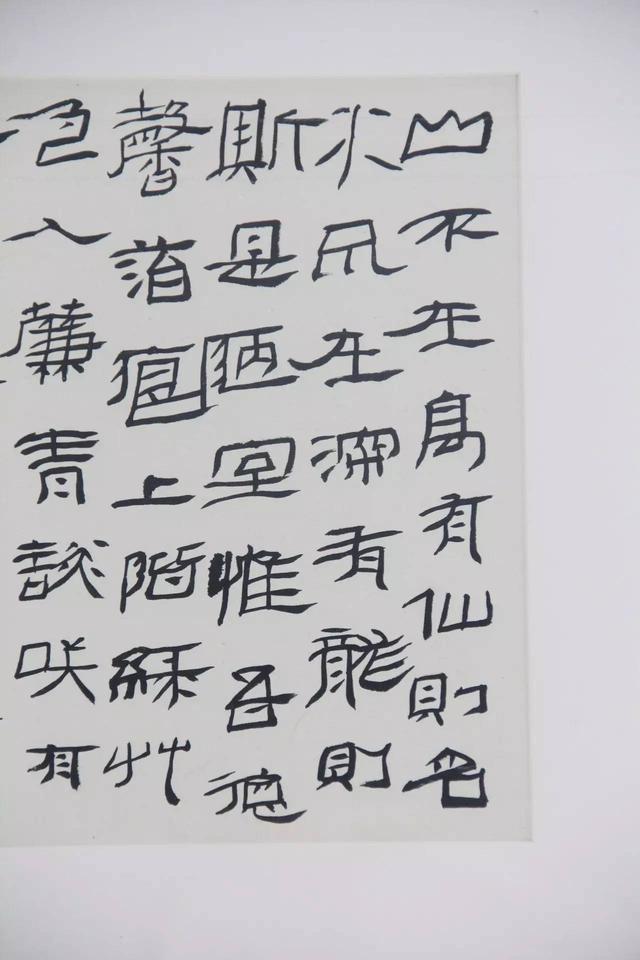 山不在高有仙則名
水不在深有龍則
斯是陋室惟吾德
馨菭痕上階綠艸
色入簾青談咲有